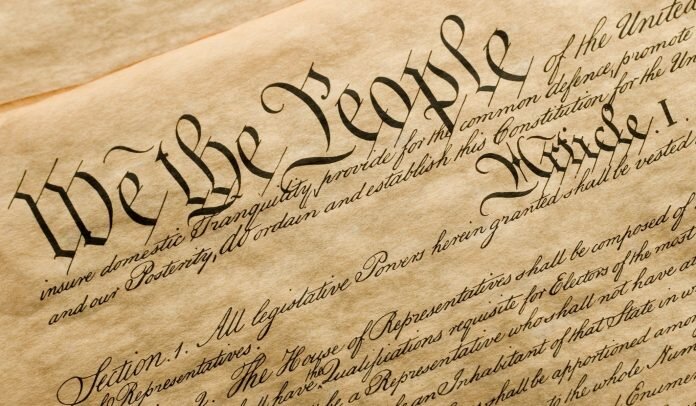 We the People of the United
insure domestic Tranquility, provide for the common defence, promote
and our Posterity, do ordain and establish this Constitution for the Un
Article. I.
Section. 1. All legislative Powers herein granted shall be vested
of Representatives.
2. The House of Representatives shall be composed of
shall have the Qualifications requisite for Electors of the most
be a Representative who shall not have at
an Inhabitant of that State in w
shall be apportioned amon
to the whole Num